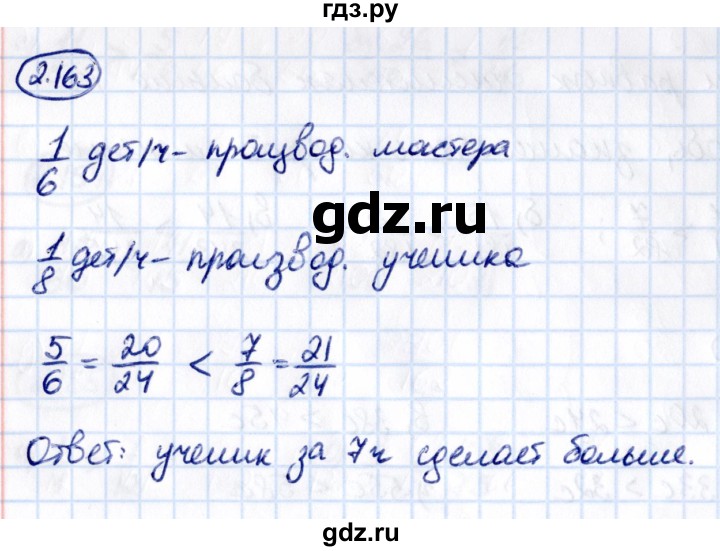 гдз.ру
2.163
1/6 дет/ч - производ. мастера
gdz.ru
1/8 дет/ч - производ. ученика
5/6 = 20/24 < 7/8 = 21/24
Ответ: ученик за 7ч сделает больше.
gdz.ru